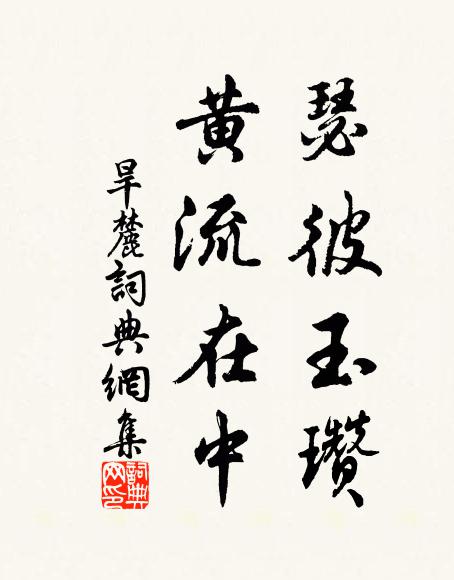 瑟彼玉瓚
黄流在中
旱麓詞典網集
詞典網印